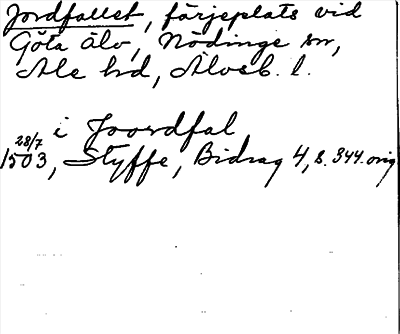 Jordfallet, färjeplats vid
Göta älv, Nödinge sn,
Ale hd, Älvsb. l.
i Joordfal
28/7
1503, Styffe, Bidrag 4, s. 344. orig